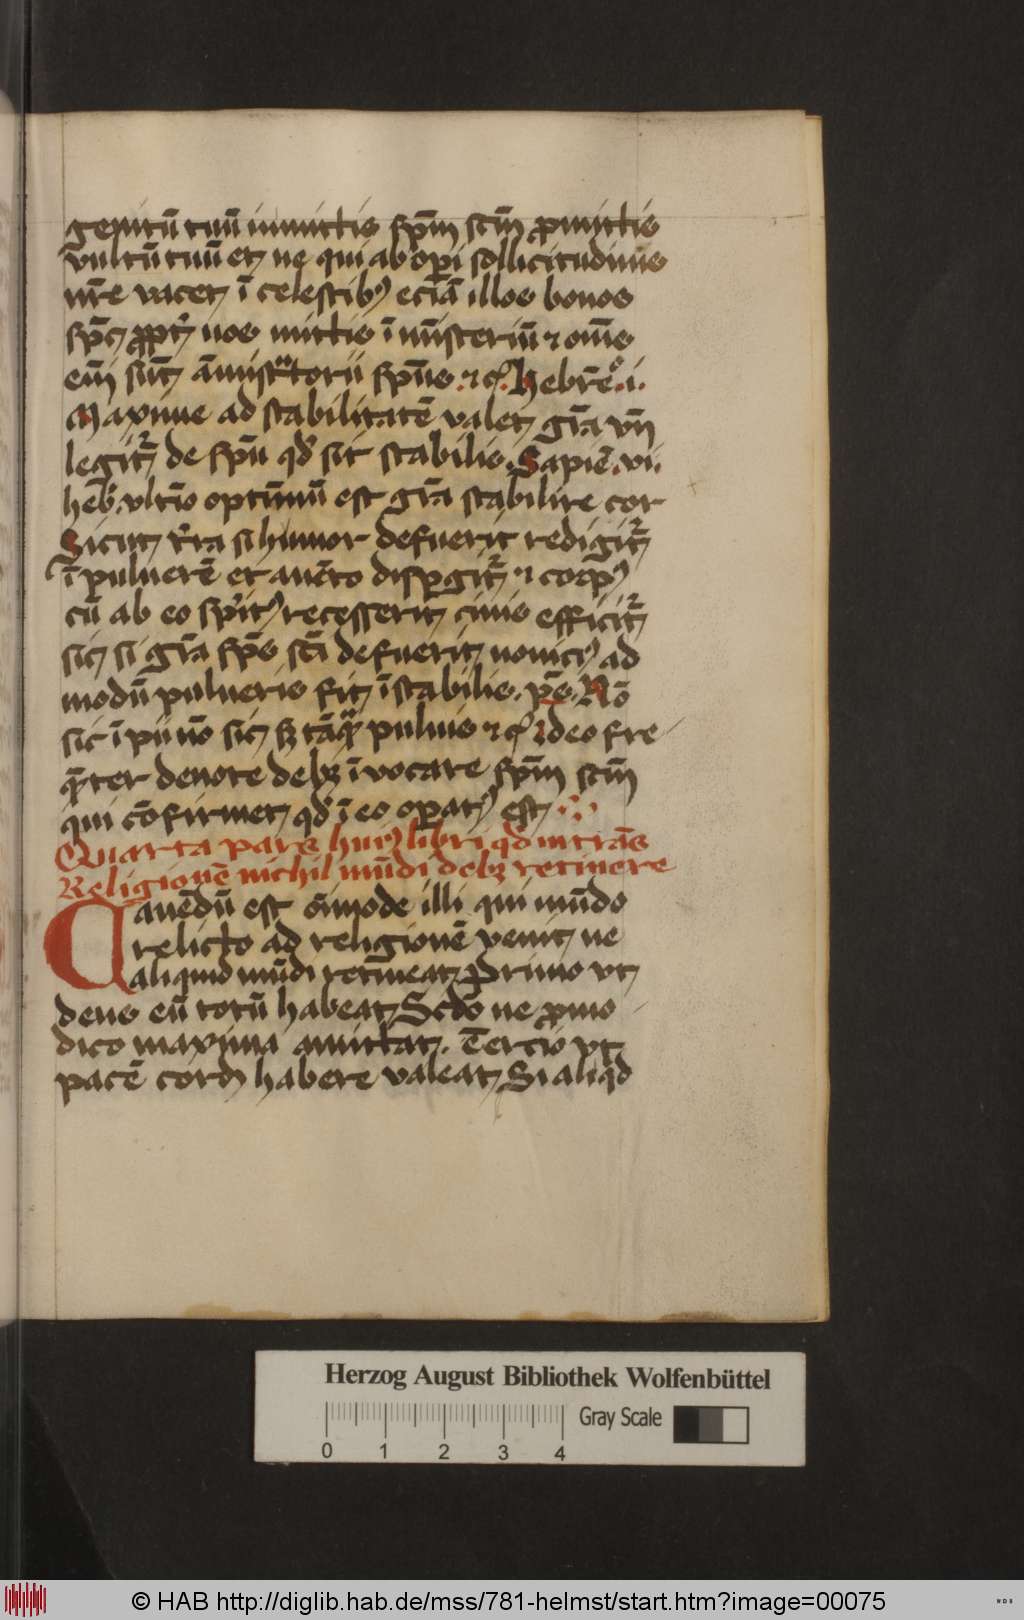 genitū tuū inmittis sp̄m sc̄m p̱mittis
vultū tuū et ne qui ab oꝑi sollicitudinis
nr̄e vacet ī celestibꝰ eciā illos bonos
sp̄c ꝓpt̄ nos mittis ī mīsteriū ⁊ om̄s
em̄ sūt āmistᵃtorii sp̄us ⁊ cͥ. Hebre͞o .i.
Maxime ad stabilitatē valet gr̄a vn̄
legit᷑ de sp̄u qd̛ sit stabilis. Sapiē. vii.
heb̛. vltīo optīmū est gr̄a stabilire cor
Sicut t̛ra si humor defuerit redigit᷑
ī puluerē et a uēto disꝑgit᷑ ⁊ corpꝰ
cū ab eo sp̛itꝰ recesserit cinis efficit᷑
sic si gr̄a sp̄s sc̄i defuerit nouicꝰ ad
modū pulueris fit īstabilis. p̄s. Nō
sic īpii nō sic sꝫ tāqᵃꝫ puluis ⁊ cͥ Ideo fre
qn̄ter deuote debꝫ īvocare sp̄m sc̄m
qui cōfirmet qd̛ ī eo oꝑatꝰ est
Quarta pars huiꝰ libri qd̛ intrās
Religionē nichil mūdi debꝫ retinere
Cauēdū est oīmode illi qui mūdo
relicto ad religionē venit ne
aliquid mūdi retineat Primo vt
deus eū totū habeat Scd̄o ne p̱ mo
dico maxima amittat. Tercio vt
pacē cord̛ habere valeat Si aliqd̛
Herzog August Bibliothek Wolfenbüttel
0 1 2 3 4 Gray Scale
© HAB http://diglib.hab.de/mss/781-helmst/start.htm?image=00075